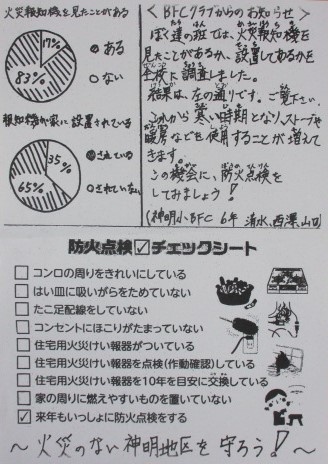 火災報知機を見たことがある
17%
83%
ある
ない
報知機が家に設置されている
35%
65%
されている
されていない
＜BFCクラブからのお知らせ＞
ぼく達の班では、火災報知機を
見たことがあるか、設置してあるかを
全校に調査しました。
結果は、左の通りです。ご覧下さい。
これから寒い時期となり、ストーブや
暖房などを使用することが増えて
きます。
この機会に、防火点検を
してみましょう！
(神明小BFC 6年 清水、西澤、山口)
防火点検☑チェックシート
□ コンロの周りをきれいにしている
□ はい皿に吸いがらをためていない
□ たこ足配線をしていない
□ コンセントにほこりがたまっていない
□ 住宅用火災けい報器がついている
□ 住宅用火災けい報器を点検(作動確認)している
□ 住宅用火災けい報器を10年を目安に交換している
□ 家の周りに燃えやすいものを置いていない
☑ 来年もいっしょに防火点検をする
～火災のない神明地区を守ろう！～